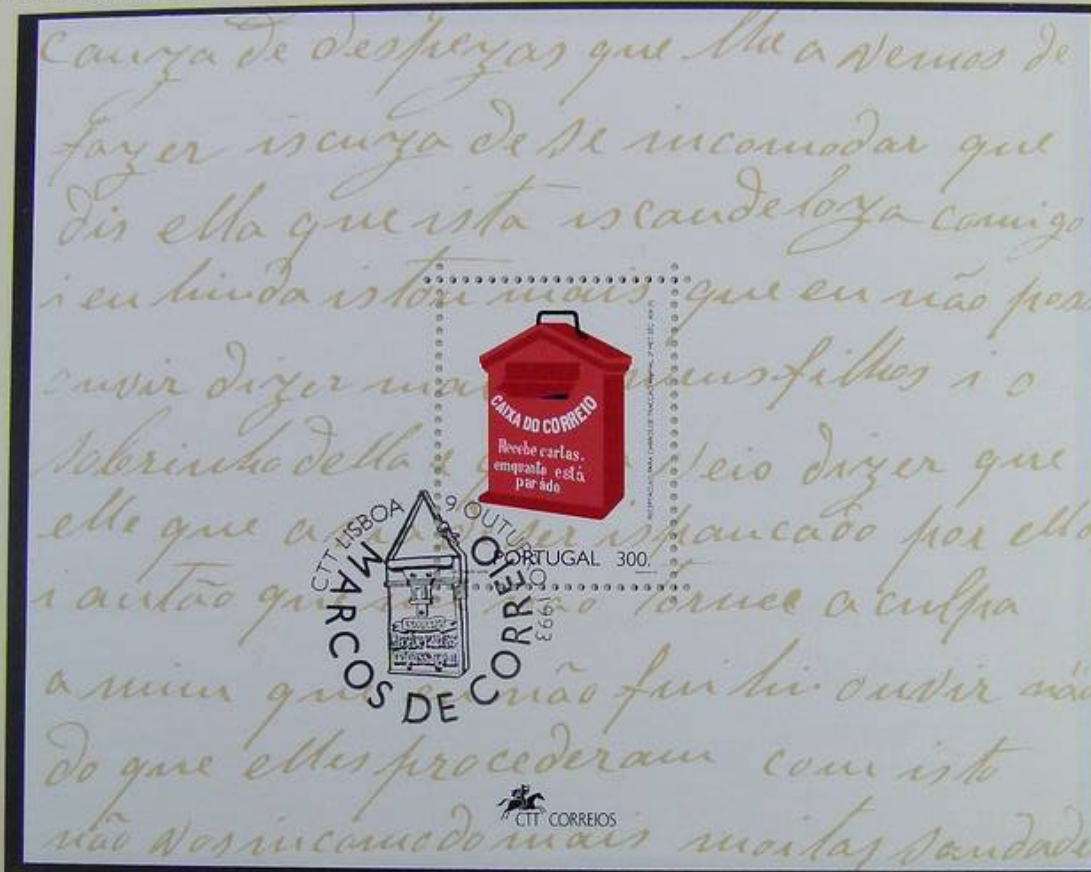 cauza de despezas que lhe a vemos de
fazer iscuza de se incomodar que
dis ella que ista iscandeloza comigo
i eu hinda istou mais que eu não pos
ouvir dizer meus filhos i o
sobrinho della e veio dizer que
elle que a ser ispancado por ella
i antão que não torne a culpa
a mim que não fui hi ouvir
do que elles procederam com isto
não vos incomodo mais moitas saudade
CAIXA DO CORREIO
Recebe cartas.
emquanto está
parádo
PORTUGAL 300.
CTT LISBOA 9 OUTUBRO 1993
MARCOS DE CORREIO
CTT CORREIOS